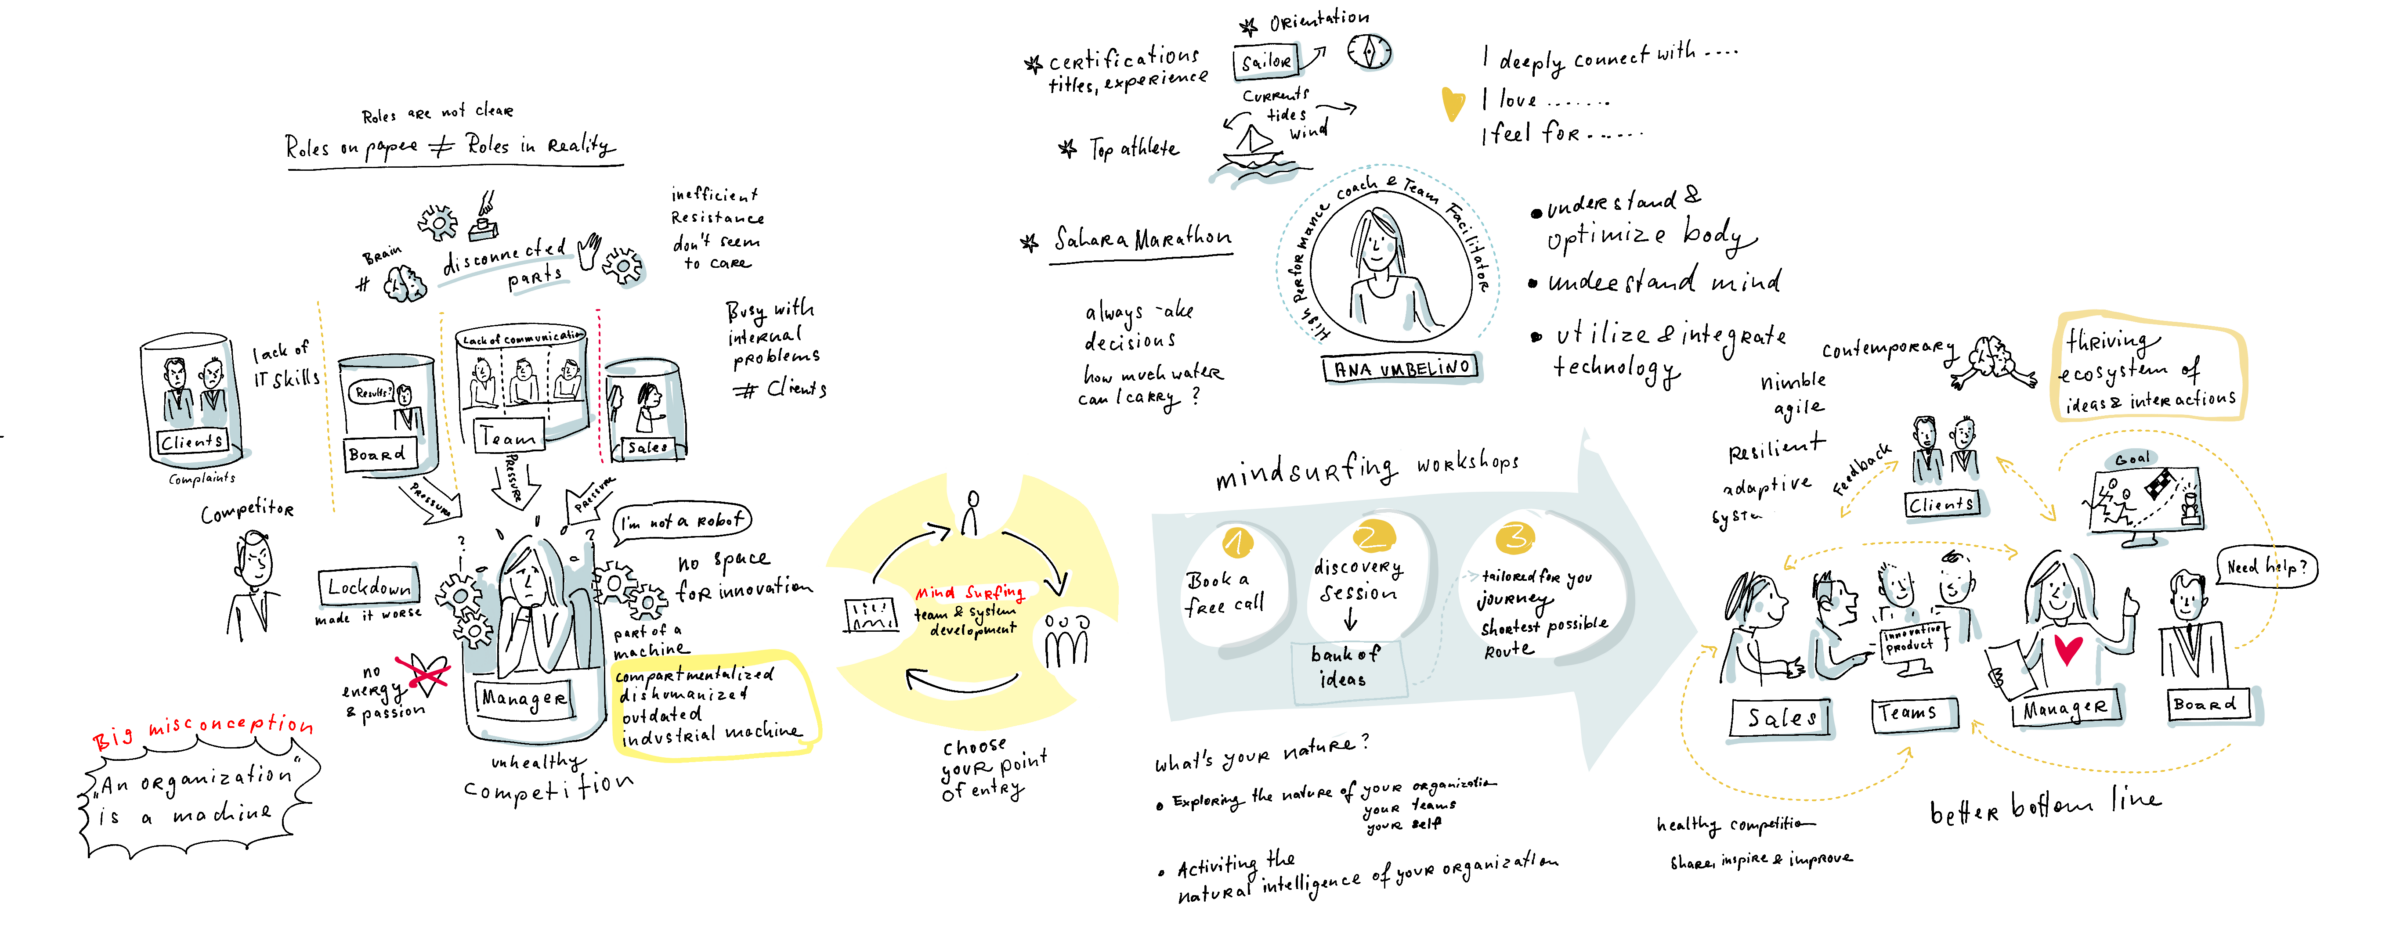 Roles are not clear
Roles on paper ≠ Roles in Reality
inefficient
Resistance
don't seem
to care
Brain
#
disconnected
parts
Busy with
internal
problems
# Clients
lack of
IT skills
Clients
Complaints
Results?
Board
Lack of communication
Team
Sales
PRESSURE
PRESSURE
PRESSURE
Competitor
I'm not a robot
Lockdown
made it worse
no space
for innovation
part of a
machine
no
energy
& passion
Manager
compartmentalized
dishumanized
outdated
industrial machine
unhealthy
competition
Big misconception
"An organization"
is a machine
Mind Surfing
team & system
development
choose
your point
of entry
certifications
titles, experience
Orientation
Sailor
Currents
tides
wind
Top athlete
Sahara Marathon
always -ake
decisions
how much water
can I carry?
High Performance coach & Team Facilitator
ANA UMBELINO
I deeply connect with ....
I love .......
I feel for ......
understand &
optimize body
understand mind
utilize & integrate
technology
mindsurfing workshops
1
Book a
free call
2
discovery
session
bank of
ideas
3
tailored for you
journey
shortest possible
Route
what's your nature?
Exploring the nature of your organization
your teams
your self
Activiting the
natural intelligence of your organization
contemporary
nimble
agile
Resilient
adaptive
system
thriving
ecosystem of
ideas & interactions
Feedback
Clients
Goal
Need help?
innovative
product
Sales
Teams
Manager
Board
better bottom line
healthy competition
share, inspire & improve